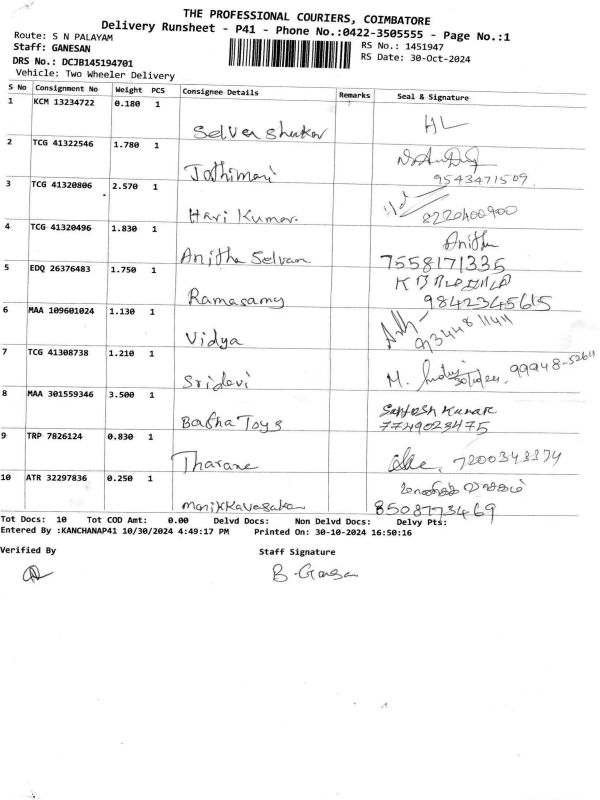 THE PROFESSIONAL COURIERS, COIMBATORE
Delivery Runsheet - P41 - Phone No.:0422-3505555 - Page No.:1
Route: S N PALAYAM
RS No.: 1451947
Staff: GANESAN
RS Date: 30-Oct-2024
DRS No.: DCJB145194701
Vehicle: Two Wheeler Delivery
S No Consignment No Weight PCS Consignee Details Remarks Seal & Signature
1 KCM 13234722 0.180 1
Selva shankar HL
2 TCG 41322546 1.780 1
Jothimani 9543471509
3 TCG 41320806 2.570 1
Hari Kumar 8220400900
4 TCG 41320496 1.830 1 Anitha
Anitha Selvam 7558171335
5 EDQ 26376483 1.750 1
Ramasamy 9842345615
6 MAA 109601024 1.130 1
Vidya 9134481 1411
7 TCG 41308738 1.210 1 99948-52611
Sridevi M. 30/10/24
8 MAA 301559346 3.500 1 Santosh Kumar
Babha Toys 7749023475
9 TRP 7826124 0.830 1
Tharane 7200343374
10 ATR 32297836 0.250 1
manikkavasakan 8508773469
Tot Docs: 10 Tot COD Amt: 0.00 Delvd Docs: Non Delvd Docs: Delvy Pts:
Entered By :KANCHANAP41 10/30/2024 4:49:17 PM Printed On: 30-10-2024 16:50:16
Verified By Staff Signature
B. Ganesan